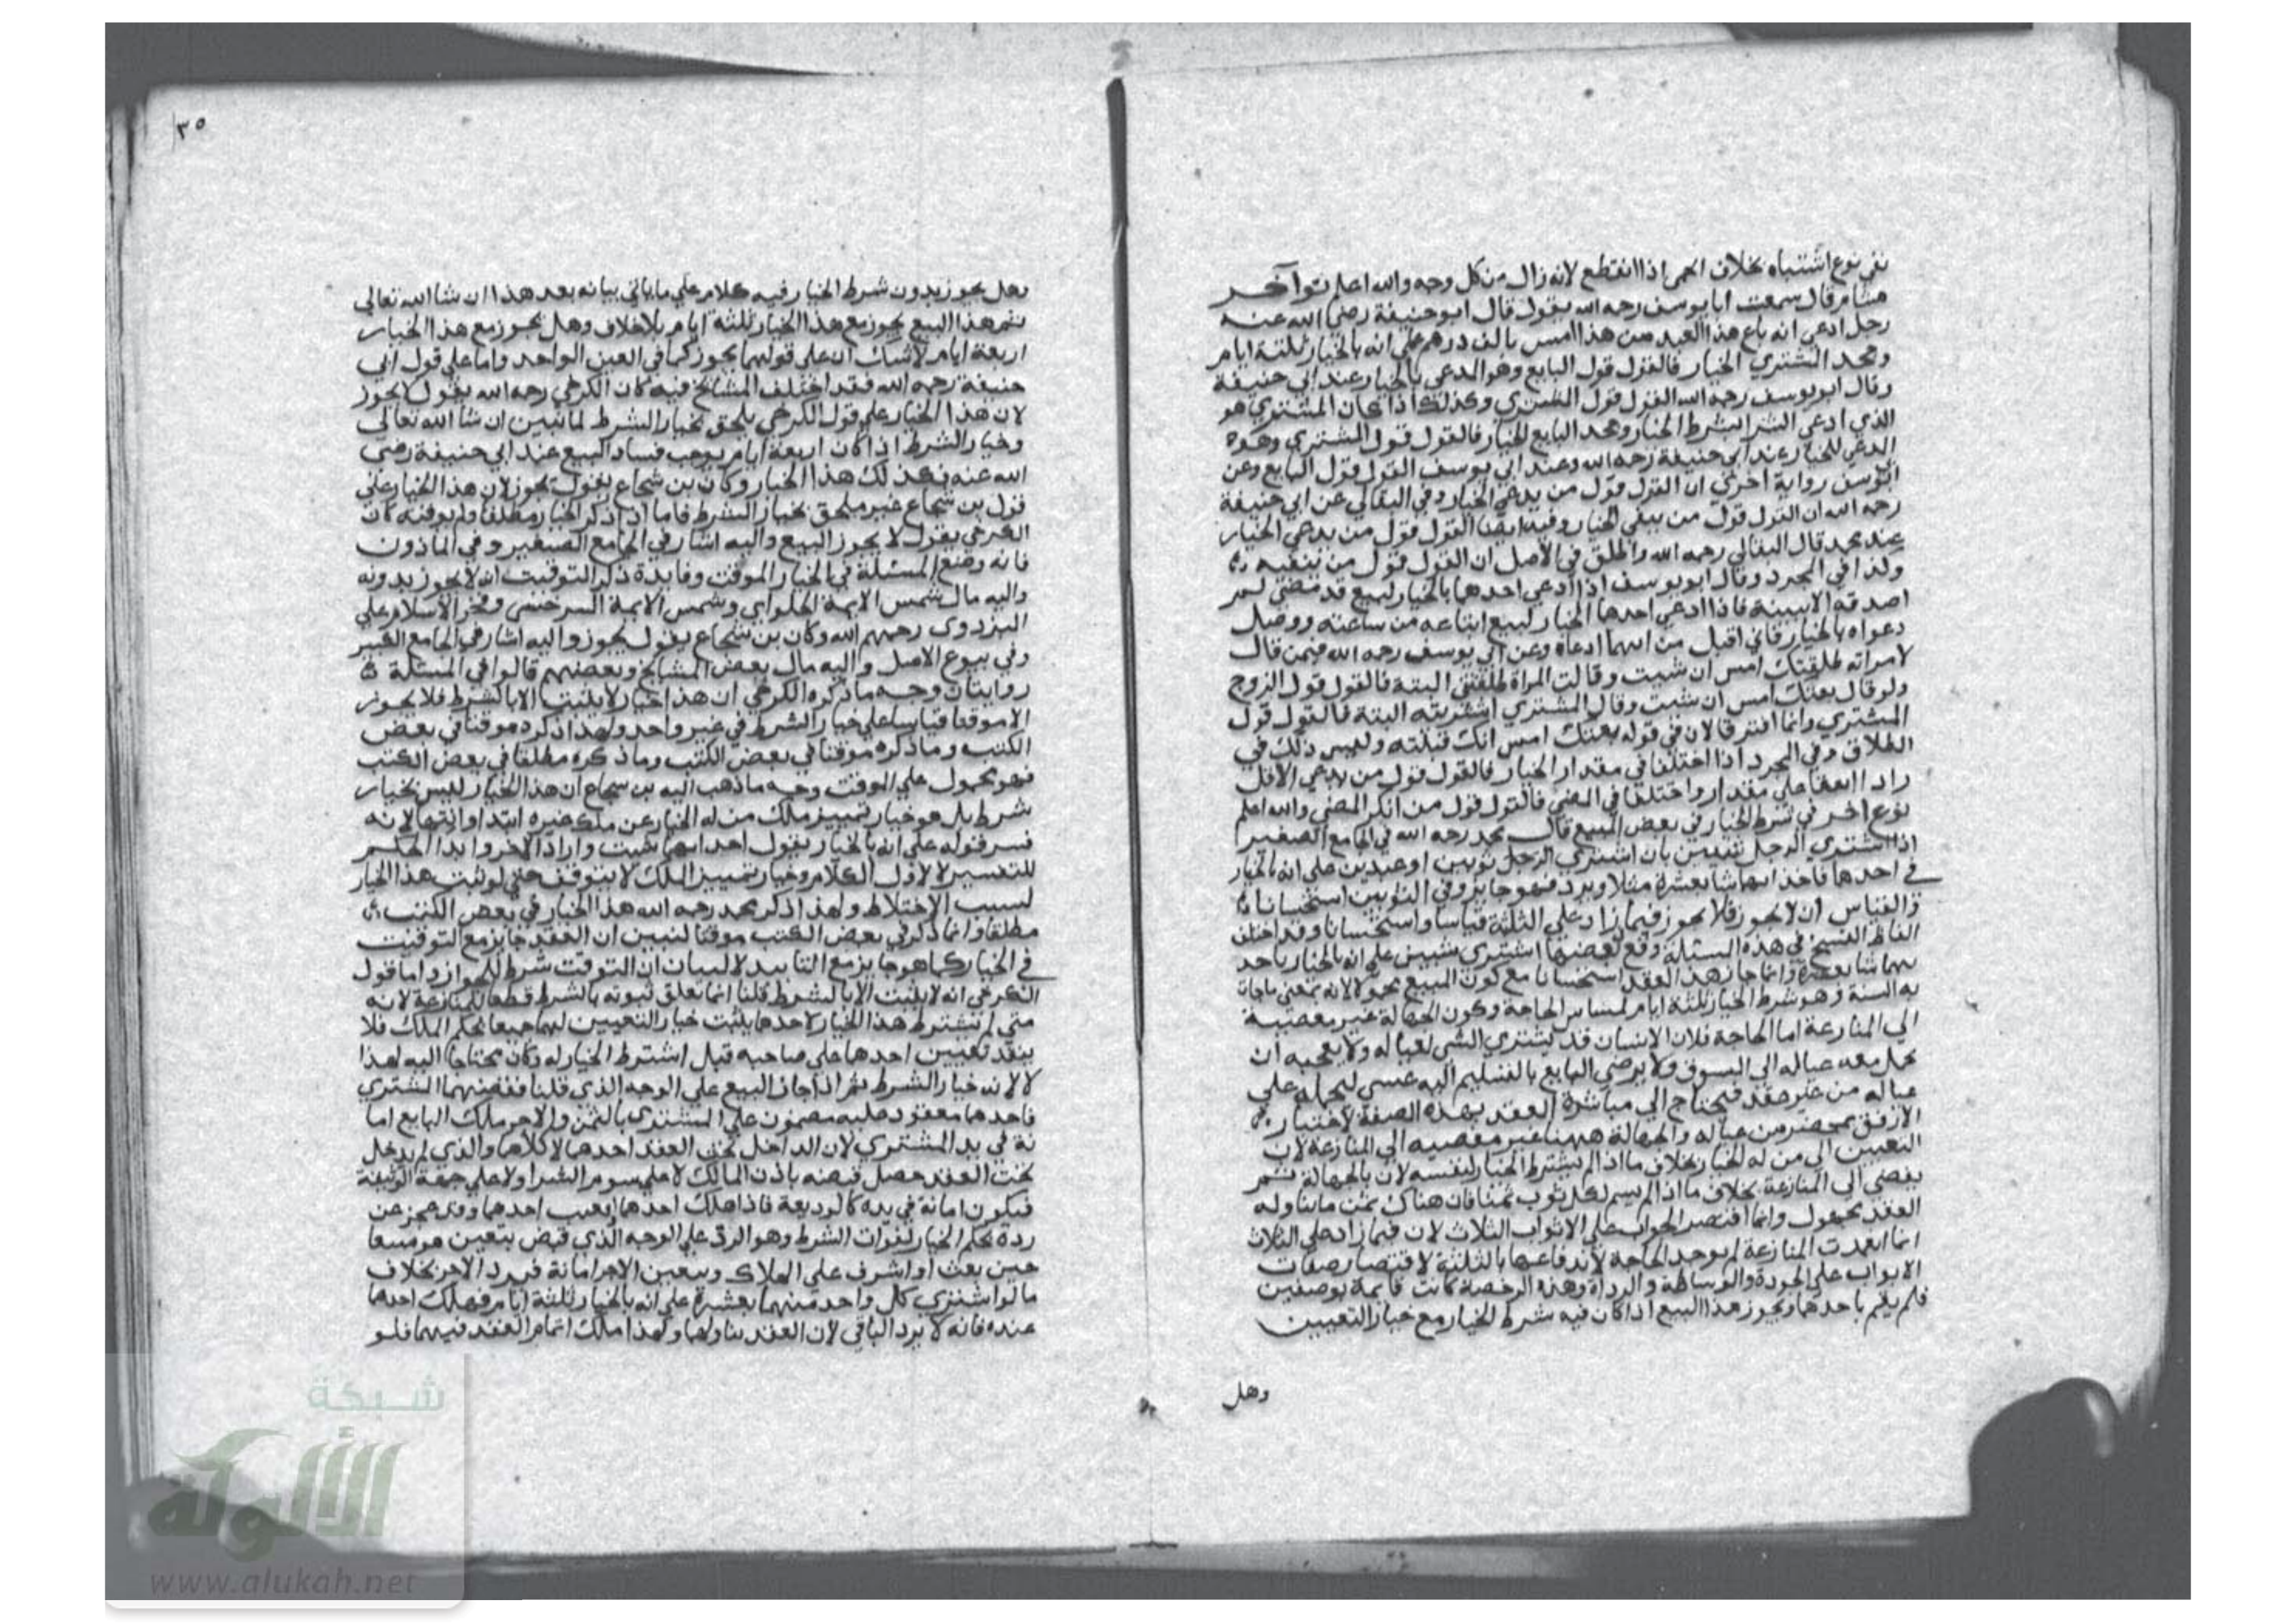 نفي نوع اشتباه بخلاف الحمى اذا انقطع لانه زال من كل وجه والله اعلم نوع آخر
هشام قال سمعت ابا يوسف رحمه الله يقول قال ابو حنيفة رضي الله عنه
رجل ادعى انه باع هذا العبد من هذا امس بالف درهم على انه بالخيار ثلثة ايام
وجحد المشتري الخيار فالقول قول البايع وهو المدعي بالخيار عند ابي حنيفة
وقال ابو يوسف رحمه الله القول قول المشتري وكذلك اذا كان المشتري هو
الذي ادعى الشرا بشرط الخيار وجحد البايع الخيار فالقول قول المشتري وهو
المدعي للخيار عند ابي حنيفة رحمه الله وعند ابي يوسف القول قول البايع وعن
ابي يوسف رواية اخرى ان القول قول من يدعي الخيار وفي البقالي عن ابي حنيفة
رحمه الله ان القول قول من ينفي الخيار وفيه ايضا القول قول من يدعي الخيار
عند محمد قال البقالي رحمه الله واطلق في الاصل ان القول قول من ينفيه
وكذا في المجرد وقال ابو يوسف اذا ادعى احدهما بالخيار لبيع قد مضى لم
اصدقه الا ببينة فاذا ادعى احدهما الخيار لبيع ابتاعه من ساعته ووصل
دعواه بالخيار فاني اقبل من ايهما ادعاه وعن ابي يوسف رحمه الله فيمن قال
لامراته طلقتك امس ان شيت وقالت المراة طلقتني البتة فالقول قول الزوج
ولو قال بعتك امس ان شيت وقال المشتري اشتريته البتة فالقول قول
المشتري وانما افترقا لان في قوله بعتك امس انك قبلته وليس ذلك في
الطلاق وفي المجرد اذا اختلفا في مقدار الخيار فالقول قول من يدعي الاقل
واذا اتفقا على مقدار واختلفا في المضي فالقول قول من انكر المضي والله اعلم
نوع آخر في شرط الخيار في بعض المبيع قال محمد رحمه الله في الجامع الصغير
اذا اشترى الرجل شيئين بان اشترى الرجل ثوبين او عبدين على انه بالخيار
في احدهما فاخذ ايهما شا بعشرة مثلا ويرد فهو جايز وفي الثوبين استحسانا
والقياس ان لا يجوز فلا يجوز فيما زاد على الثلثة قياسا واستحسانا وقد اختلف
الفاظ النسخ في هذه المسئلة وقع بعضها اشترى شيئين على انه بالخيار ياخذ
ايهما شا بعشرة وانما جاز هذا العقد استحسانا مع كون المبيع مجهولا لانه بمعنى ما جات
به السنة وهو شرط الخيار ثلثة ايام لمساس الحاجة وكون الجهالة غير مفضية
الى المنازعة اما الحاجة فلان الانسان قد يشتري الشي لعياله ولا يعجبه ان
يحمل معه عياله الى السوق ولا يرضى البايع بالتسليم اليه عسى ليحمله على
عياله من غير عقد فيحتاج الى مباشرة العقد بهذه الصفة لاختيار
الارفق بمحضر من عياله والجهالة ههنا غير مفضيه الى المنازعة لان
التعيين الى من له الخيار بخلاف ما اذا لم يشترط الخيار لنفسه لان بالجهالة ثمر
يفضي الى المنازعة بخلاف ما اذا لم يسم لكل ثوب ثمنا فان هناك ثمن ما يتناوله
العقد مجهول وانما اقتصر الجواب على الاثواب الثلاث لان فيما زاد على الثلاث
انما انعدمت المنازعة لم يوجد الحاجة لاندفاعها بالثلثة لاقتصار صفات
الابواب على الجودة والوساطة والرداة وهذه الرخصة كانت قايمة بوصفين
فلم يقم باحدهما ويجوز هذا البيع اذا كان فيه شرط الخيار مع خيار التعيين
وهل
٣٥
وهل يجوز بدون شرط الخيار فيه كلام على ما ياتي بيانه بعد هذا ان شا الله تعالى
ثم هذا البيع يجوز مع هذا الخيار ثلثة ايام بلا خلاف وهل يجوز مع هذا الخيار
اربعة ايام لا شك ان على قولهما يجوز كما في العين الواحد واما على قول ابي
حنيفة رحمه الله فقد اختلف المشايخ فيه كان الكرخي رحمه الله يقول لا يجوز
لان هذا الخيار على قول الكرخي يلحق بخيار الشرط لما نبين ان شا الله تعالى
وخيار الشرط اذا كان اربعة ايام يوجب فساد البيع عند ابي حنيفة رضي
الله عنه فكذلك هذا الخيار وكان بن شجاع يقول يجوز لان هذا الخيار على
قول بن شجاع غير ملحق بخيار الشرط فاما اذا ذكر الخيار مطلقا ولم يوقته كان
الكرخي يقول لا يجوز البيع واليه اشار في الجامع الصغير وفي الماذون
فانه وضع المسئلة في الخيار الموقت وفايدة ذكر التوقيت انه لا يجوز بدونه
واليه مال شمس الايمة الحلواي وشمس الايمة السرخسي وفخر الاسلام على
البزدوى رحمهم الله وكان بن شجاع يقول يجوز واليه اشار في الجامع الكبير
وفي بيوع الاصل واليه مال بعض المشايخ وبعضهم قالوا في المسئلة
روايتان وجه ما ذكره الكرخي ان هذا خيار لا يثبت الا بالشرط فلا يجوز
الا موقتا قياسا على خيار الشرط في غير واحد ولهذا ذكره موقتا في بعض
الكتب وما ذكره موقتا في بعض الكتب وما ذكره مطلقا في بعض الكتب
فهو محمول على الموقت وجه ما ذهب اليه بن شجاع ان هذا الخيار ليس بخيار
شرط بل هو خيار تمييز ملك من له الخيار عن ملك غيره ابتدا وانتها لانه
فسر قوله على انه بالخيار يقول اخذ ايهما شيت واراد الاخر وابدا الحكم
للتفسير لا لاول الكلام وخيار تمييز الملك لا يتوقف حتى لو ثبت هذا الخيار
لسبب الاختلاط ولهذا ذكر محمد رحمه الله هذا الخيار في بعض الكتب
مطلقا وانما ذكر في بعض الكتب موقتا لنبين ان العقد جايز مع التوقيت
في الخيار كما هو جايز مع التابيد لا لبيان ان التوقت شرط للجواز واما قول
الكرخي انه لا يثبت الا بالشرط قلنا انما تعلق ثبوته بالشرط قطعا للمنازعة لانه
متى لم يشترط هذا الخيار لاحدهما يثبت خيار التعيين لهما جميعا بحكم الملك فلا
ينفد تعيين احدهما على صاحبه قبل اشترط الخيار له وكان محتاجا اليه لهذا
لا لانه خيار الشرط ثم اذا جاز البيع على الوجه الذي قلنا فقبضهما المشتري
فاحدهما معقود عليه مضمون على المشتري بالثمن والاخر ملك البايع اما
نة في يد المشتري لان الداخل تحت العقد احدهما لا كلاهما والذي لم يدخل
تحت العقد حصل قبضه باذن المالك لا على سوم الشرا ولا على جهة الوثيقة
فيكون امانة في يده كالوديعة فاذا هلك احدهما او تعيب احدهما وقد عجز عن
ردة بحكم الخيار لفوات الشرط وهو الرد على الوجه الذي قبض بتعين هو مبيعا
حين بعث او اشرف على الهلاك وتعين الاخر امانة فيرد الاخر بخلاف
ما لو اشترى كل واحد منهما بعشرة على انه بالخيار ثلثة ايام فهلك احدهما
عنده فانه لا يرد الباقي لان العقد يتناولهما ولهذا ملك اتمام العقد فيهما فلو
شبكة
الألوكة
www.alukah.net